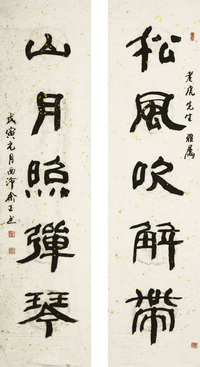 松風吹解帶
老虎先生雅屬
山月照彈琴
戊寅元月西泠